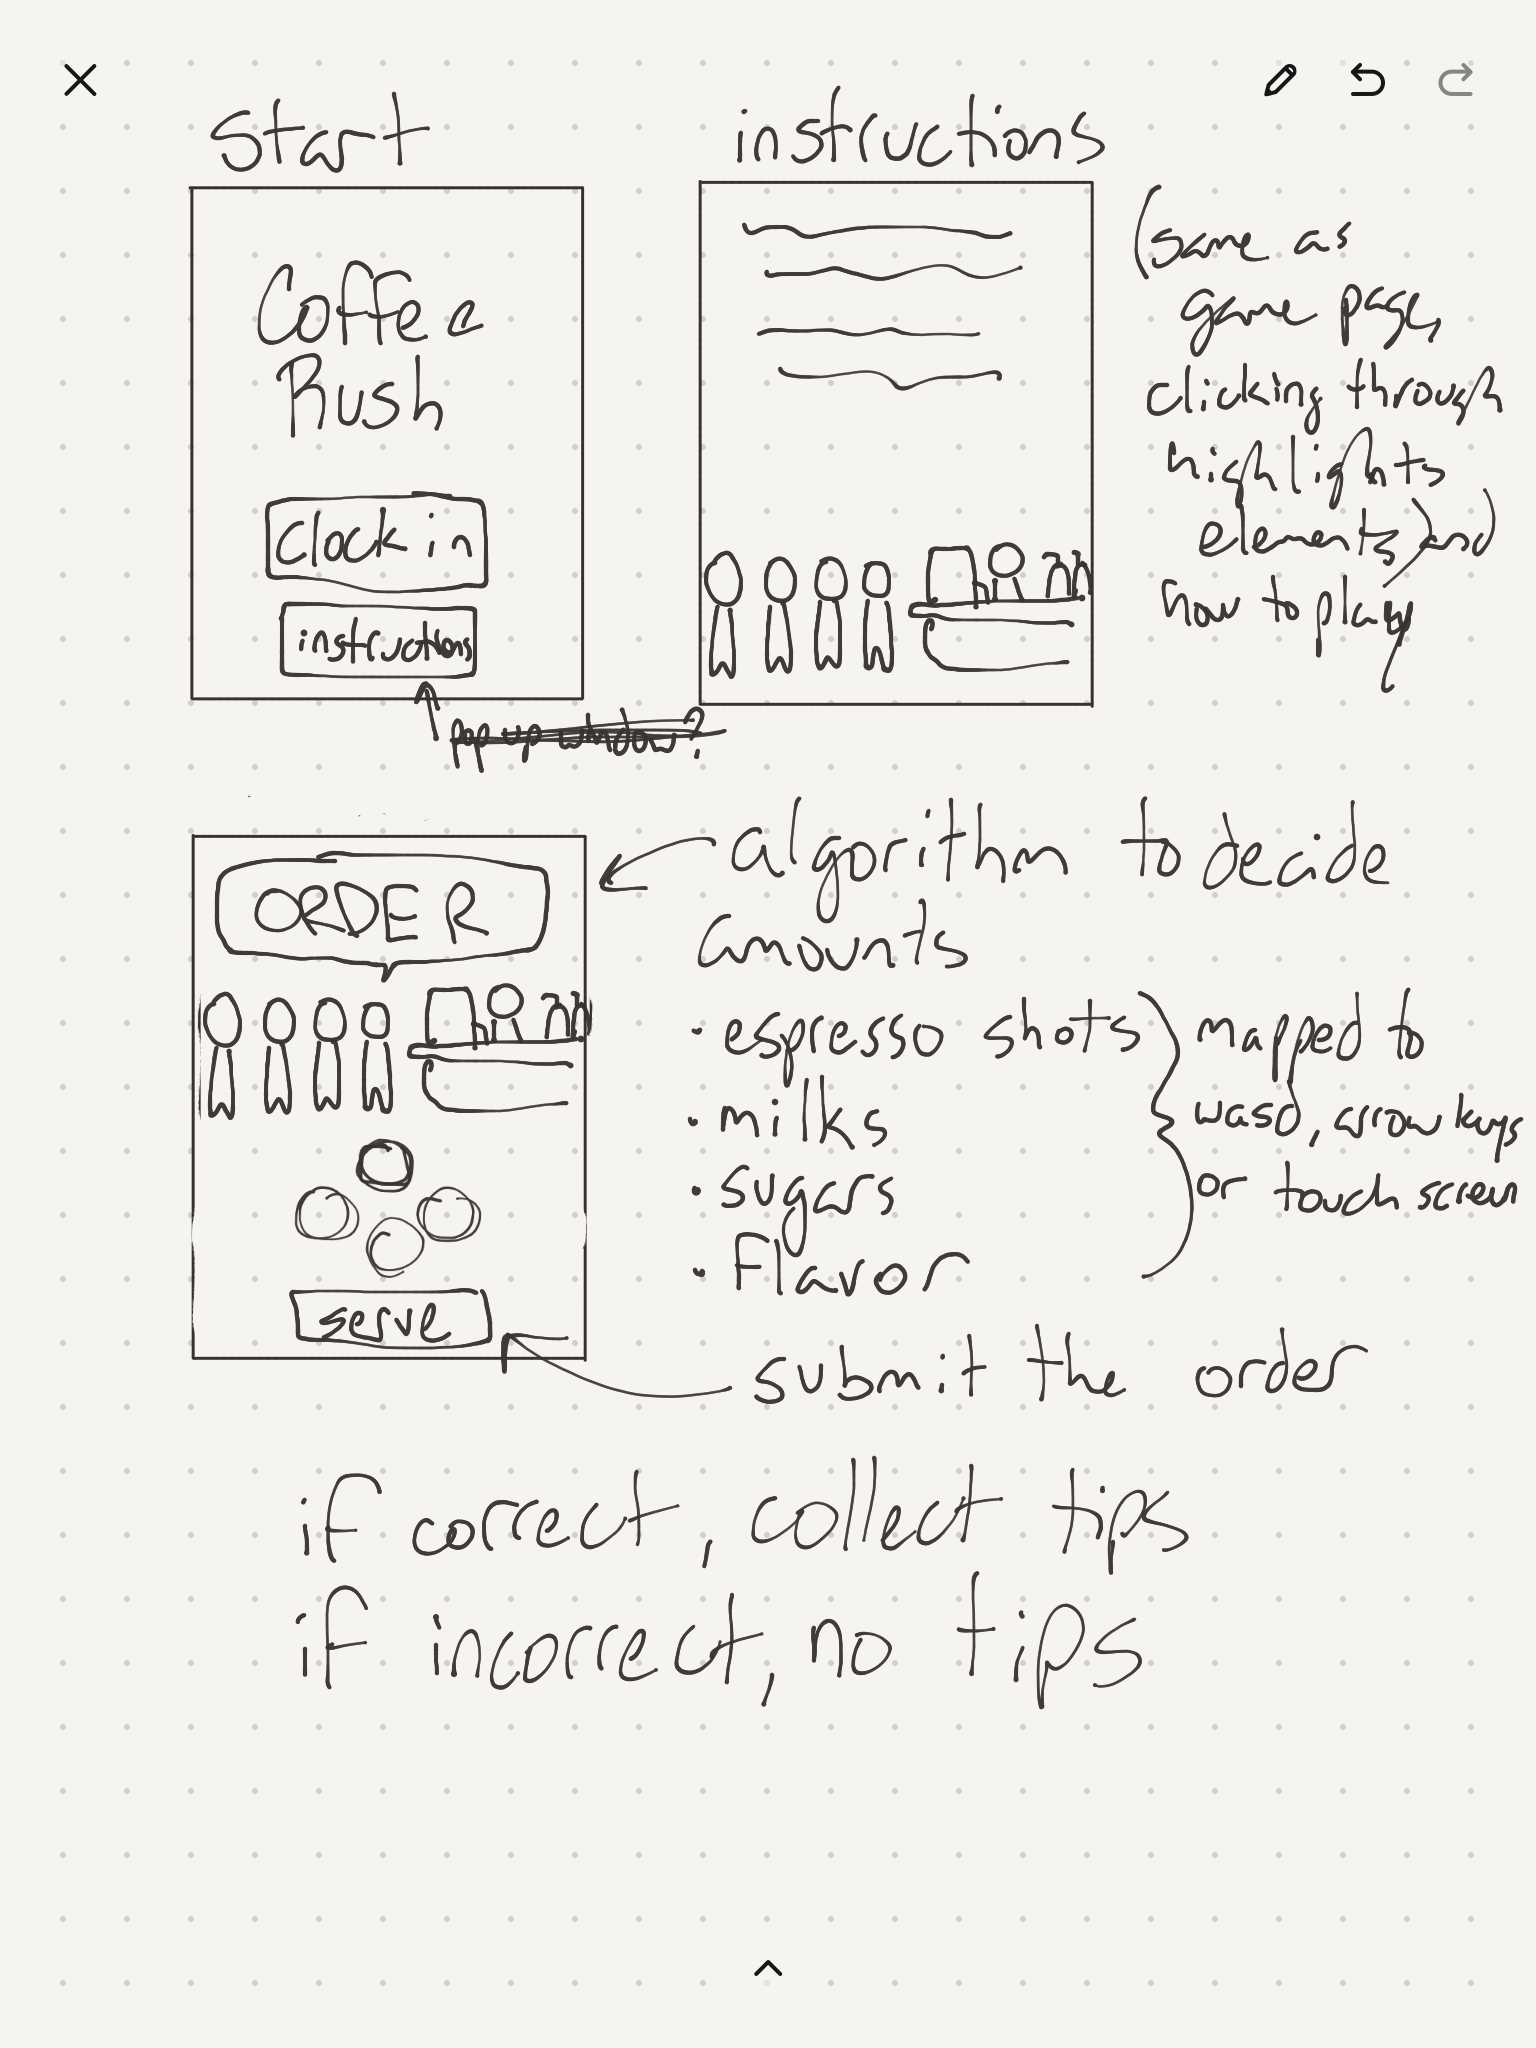 Start
instructions
Coffee
Rush
Clock in
instructions
(same as
game page,
clicking through
highlights
elements and)
how to play
pop up window?
ORDER
serve
algorithm to decide
amounts
• espresso shots
• milks
• sugars
• Flavor
mapped to
wasd, arrow keys
or touch screen
submit the order
if correct, collect tips
if incorrect, no tips